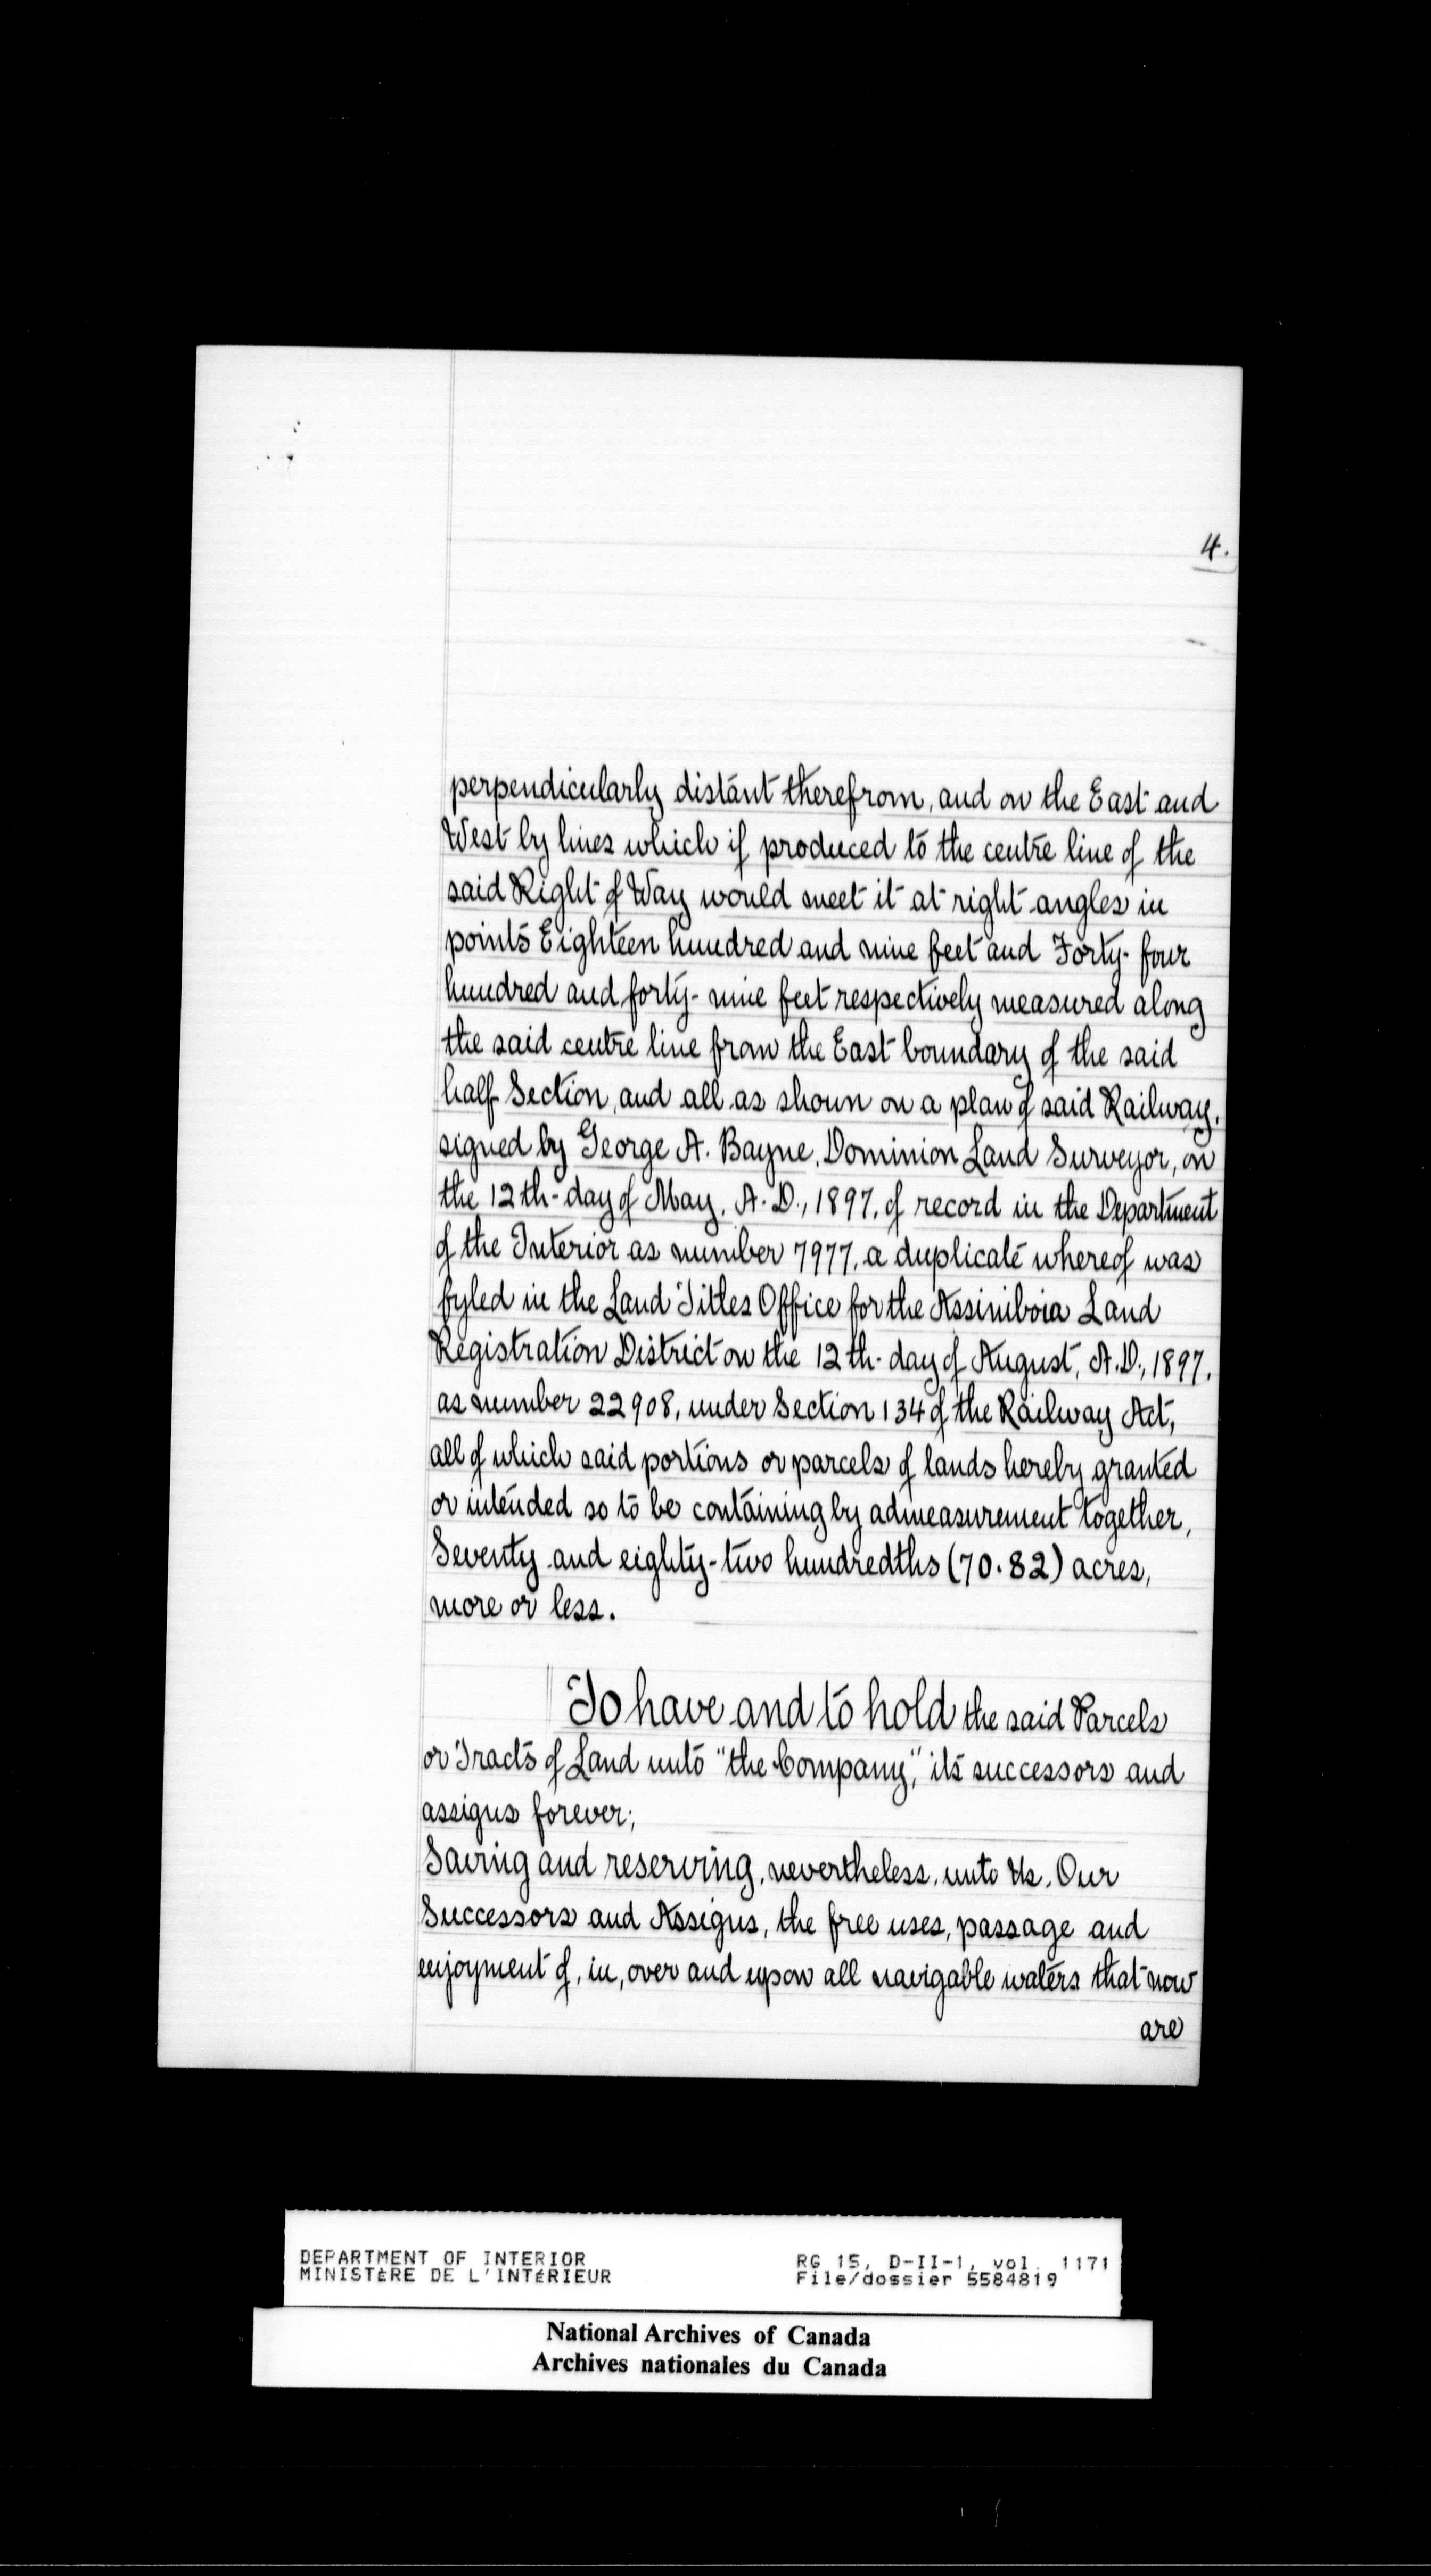 4.
perpendicularly distant therefrom, and on the East and
West by lines which if produced to the centre line of the
said Right of Way would meet it at right angles in
points Eighteen hundred and nine feet and Forty-four
hundred and forty-nine feet respectively measured along
the said centre line from the East boundary of the said
half Section, and all as shown on a plan of said Railway,
signed by George A. Bayne, Dominion Land Surveyor, on
the 12th-day of May, A.D., 1897, of record in the Department
of the Interior as number 7977, a duplicate whereof was
fyled in the Land Titles Office for the Assiniboia Land
Registration District on the 12th-day of August, A.D., 1897,
as number 22908, under Section 134 of the Railway Act,
all of which said portions or parcels of lands hereby granted
or intended so to be containing by admeasurement together,
Seventy and eighty-two hundredths (70.82) acres,
more or less.
To have and to hold the said Parcels
or Tracts of Land unto "the Company," its successors and
assigns forever;
Saving and reserving, nevertheless, unto Us, Our
Successors and Assigns, the free uses, passage and
enjoyment of, in, over and upon all navigable waters that now
are
DEPARTMENT OF INTERIOR RG 15, D-II-1, vol. 1171
MINISTÈRE DE L'INTÉRIEUR File/dossier 5584819
National Archives of Canada
Archives nationales du Canada